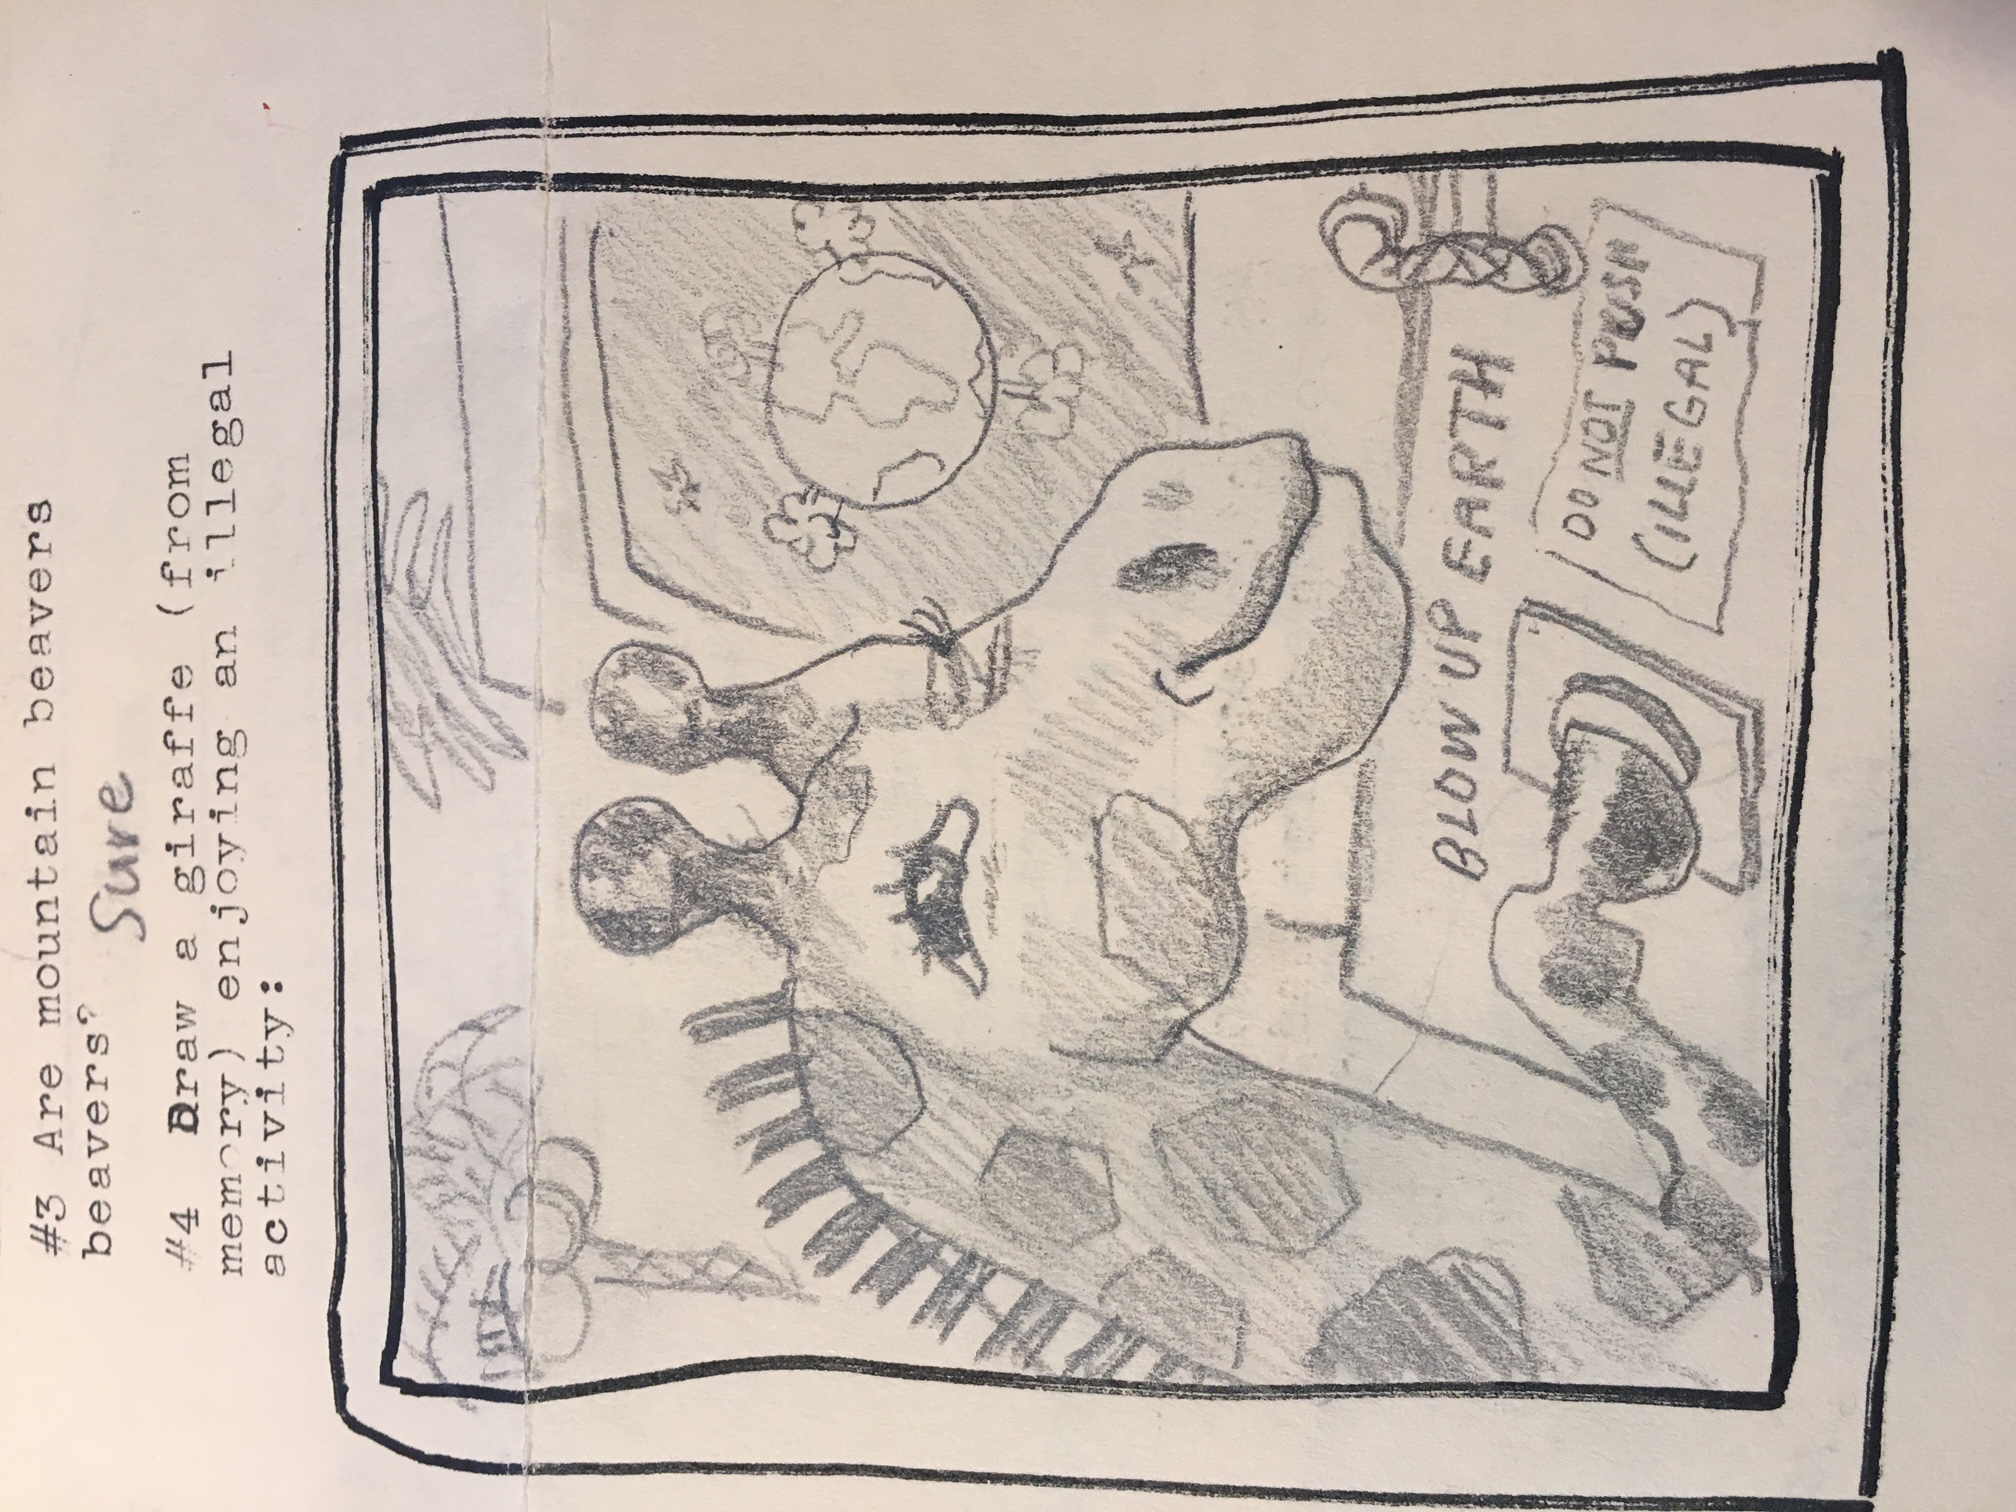 #3 Are mountain beavers
beavers?
Sure
#4 Draw a giraffe (from
memory) enjoying an illegal
activity:
BLOW UP EARTH
DO NOT PUSH
(ILLEGAL)